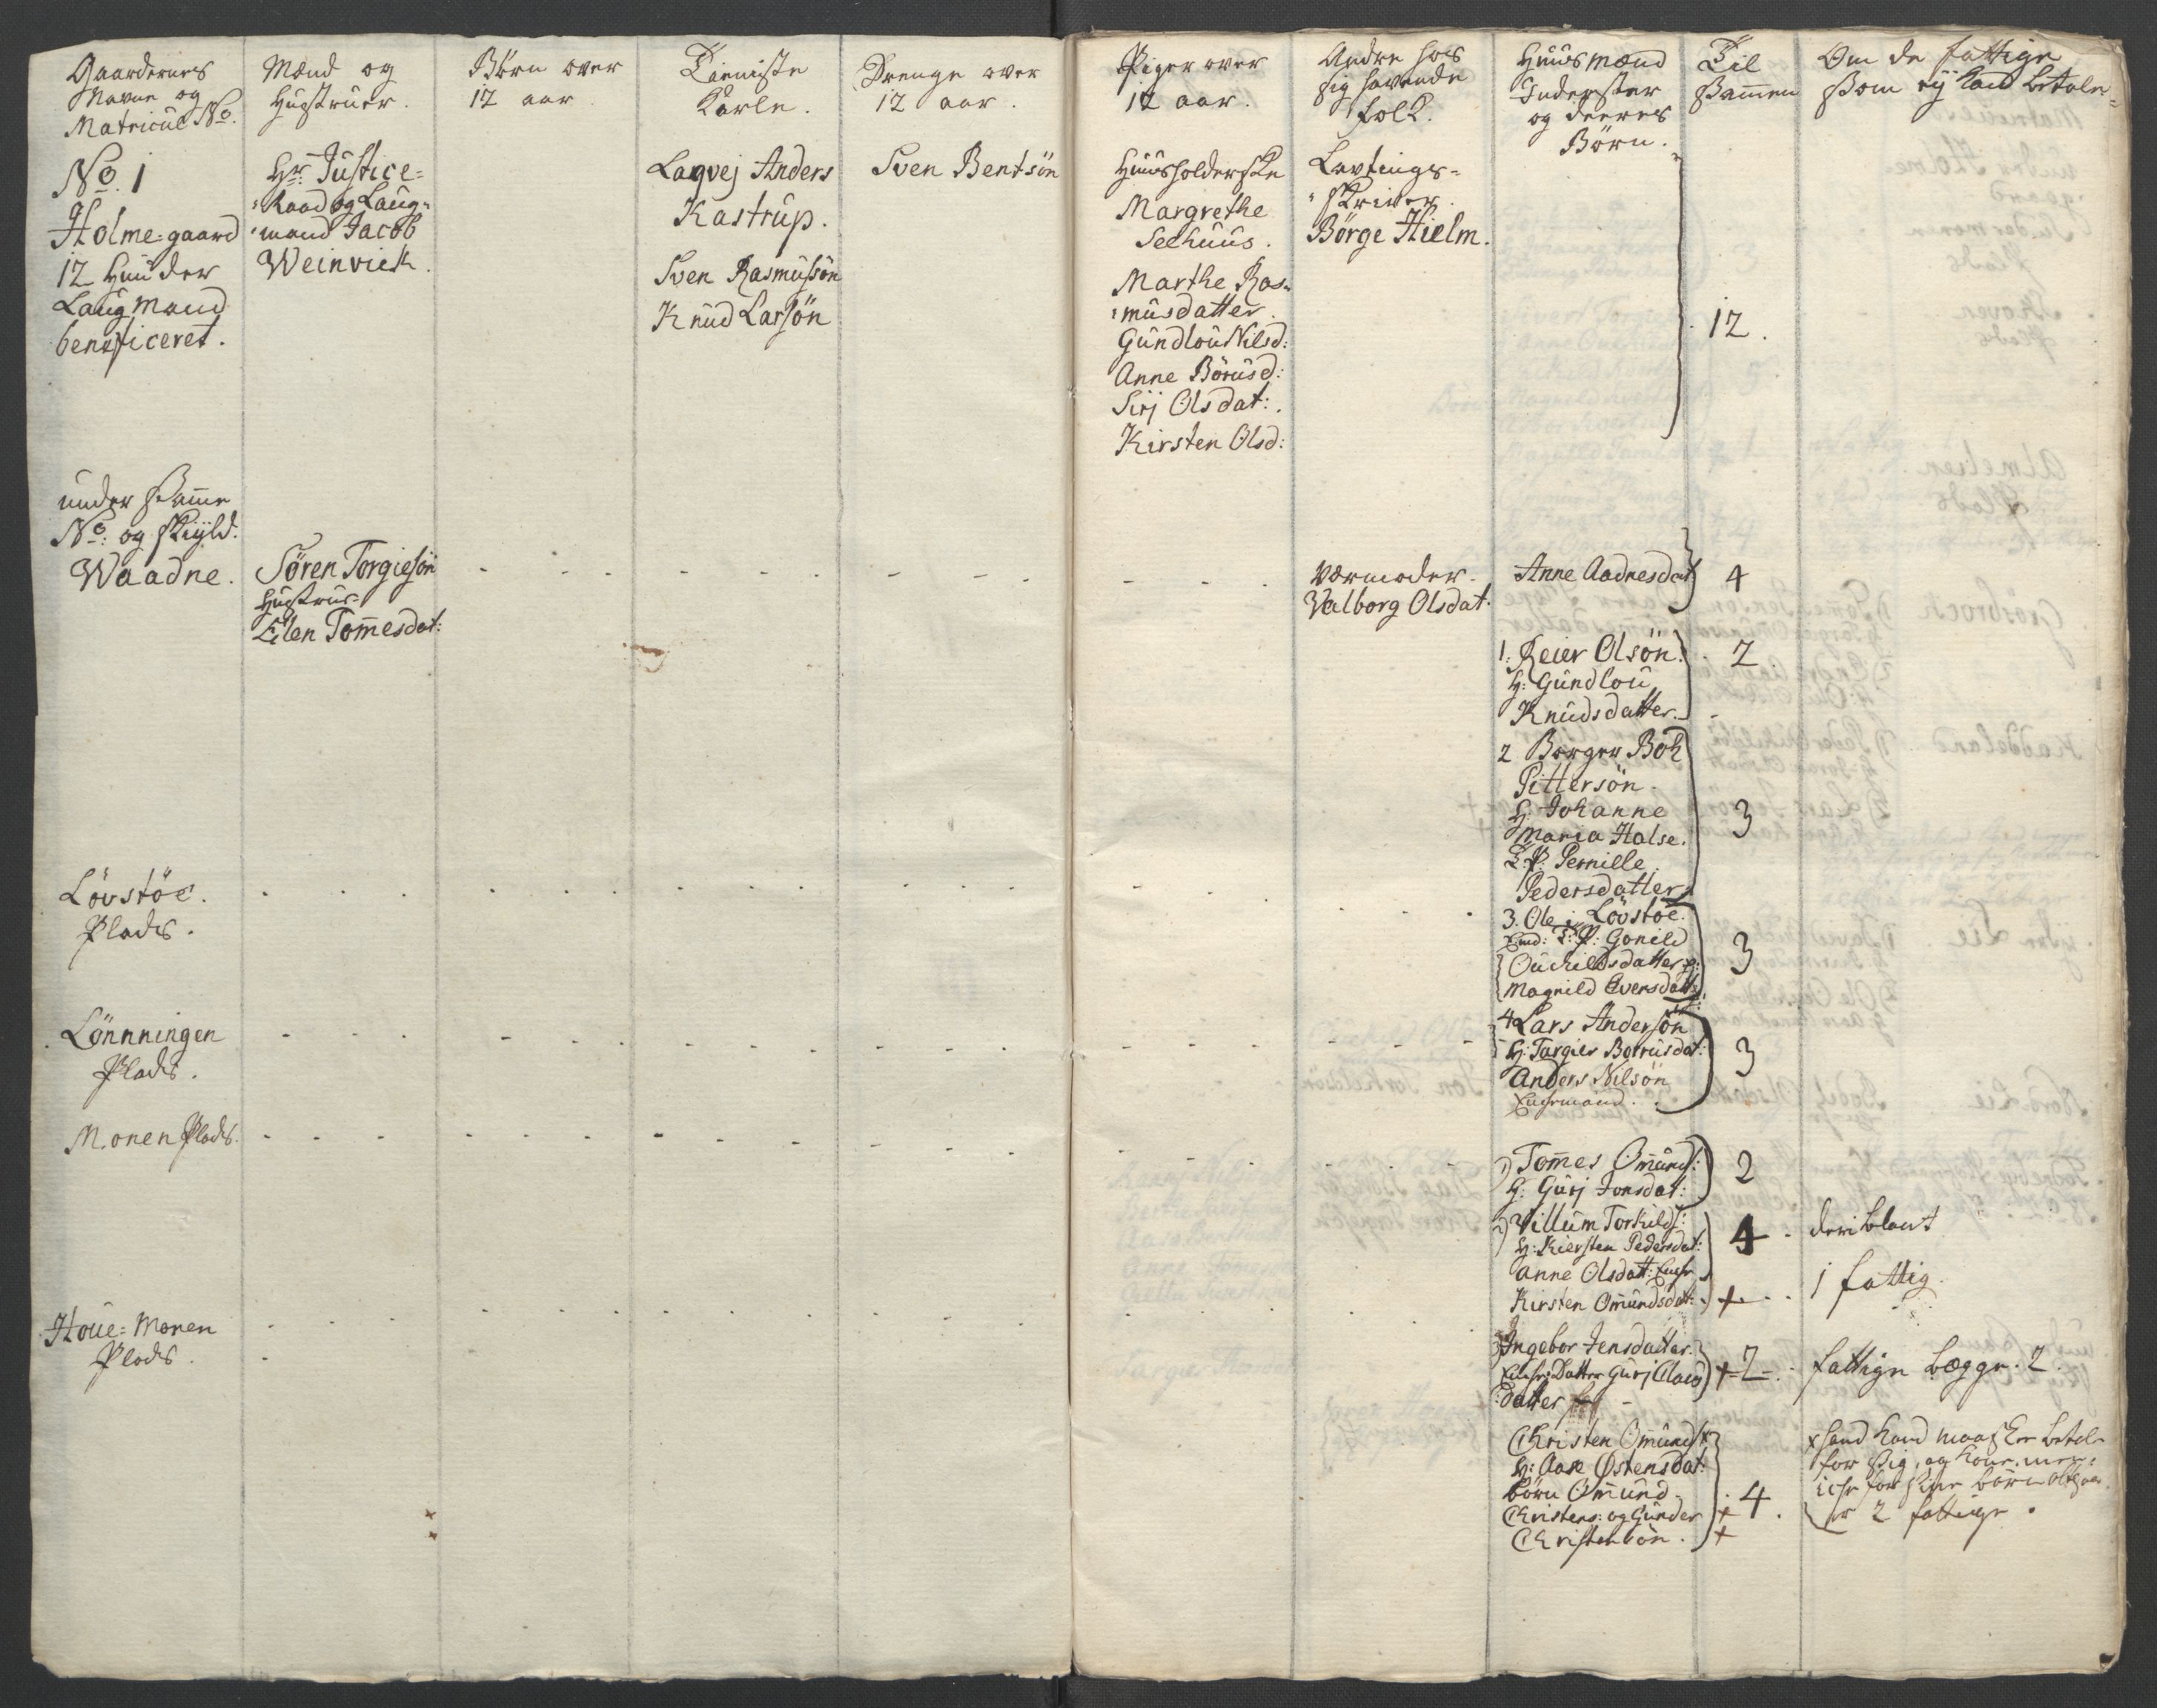 Gaardernes
Navne og
Matricül No.
Mænd og
Hustruer.
Börn over
12 aar
Tieniste
Karle.
Drenge over
12 aar.
Piger over
12 aar.
Andre hos
sig havende
folk.
Huus mænd
Inderster
og deeres
Börn.
Til
sammen
Om de fattige
som ej kand betale
No. 1
Holme-gaard
12 Huuder
Laugmand
beneficeret.
Hr. Justice-
Raad og Laug-
mand Jacob
Weinvich.
Laqvej Anders
Kastrup.
Sven Rasmusön
Knud Larsön
Sven Bentsön
Huusholderske
Margrethe
Seehuus.
Marthe Ras-
musdatter.
Gundlou Nilsd:
Anne Börüsd:
Sirj Olsdat:
Kirsten Olsd:
Lavtings-
skriver.
Börge Hielm.
12.
under samme
No: og skyld.
Waadne.
Sören Torgiesön
Hustrue
Elen Tomesdat:
Værmoder.
Valborg Olsdat.
Anne Aadnesdat
4
1. Reier Olsön.
H: Gundlou
Knudsdatter.
2.
2 Borger Boh
Pittersön.
H: Johanne
Maria Halse.
T: P: Pernille
Pedersdatter
3
Lövstöe.
Plads.
3. Ole i Lövstöe.
T: P: Gonild
Ouchildsdatter
Magnild Eversdatt:
3
Lönnningen
Plads.
4 Lars Andersön
H: Targier Borrusdat:
Anders Nilsön
3
Monen Plads.
1) Tomes Omunds:
H: Gurj Jonsdat:
2
2) Villum Torkilds:
H: Kiersten Pedersdat:
Anne Olsdatt:
Kirsten Omundsdat:
4
+
deriblant
1 fattig.
Houe-Monen
Plads.
3) Ingebor Jensdatter.
Datter Gurj Claus
datter
+ 2
fattige begge. 2.
Christen Omunds:
H: Aase Østensdat:
börn Omund
Christens: og Gunder
Christensön.
4.
+
+
x hand kand maaskee betale
for sig, og kone, men
icke for sine börn altsaa
er 2 fattige.